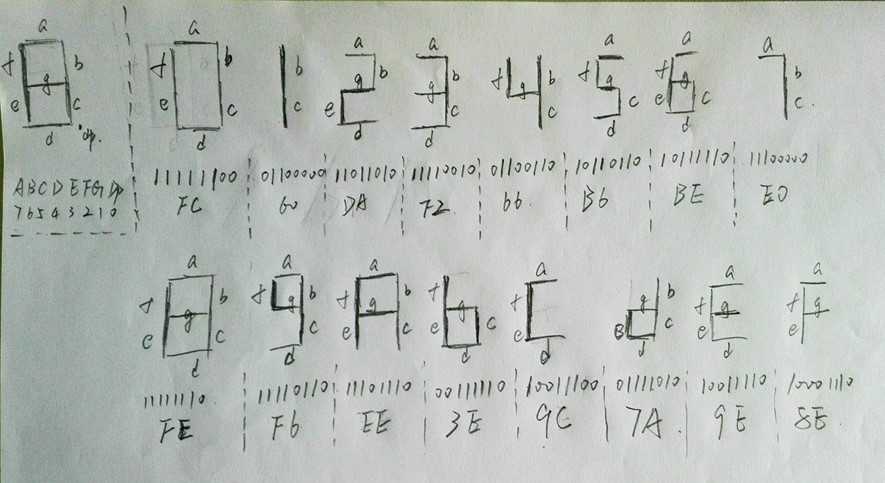 a a a a a a a
f b f b b g b f b f g b f f g b
e g c e c c e c g c g c c e c c.
d dp. d d d d d
ABCDEFGDp 11111100 01100000 11011010 11110010 01100110 10110110 10111110 11100000
76543210 FC 60 DA F2. 66. B6 BE E0
a a a a a
f b f g b f g b f f g f g f g
e g c c e c e g c e B c e e
d d d d d d
11111110. 11110110 11101110 00111110 10011100 01111010 10011110 10001110
FE F6 EE 3E 9C 7A. 9E 8E.